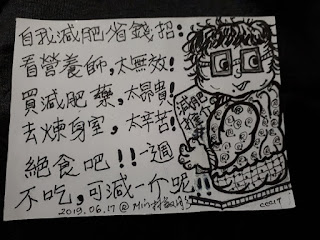 自我減肥省錢招:
看營養師,太無效!
買減肥藥,太昂貴!
去煉身室,太辛苦!
絕食吧!!一週
不吃,可減一介呢!!
2019.06.17@
減肥